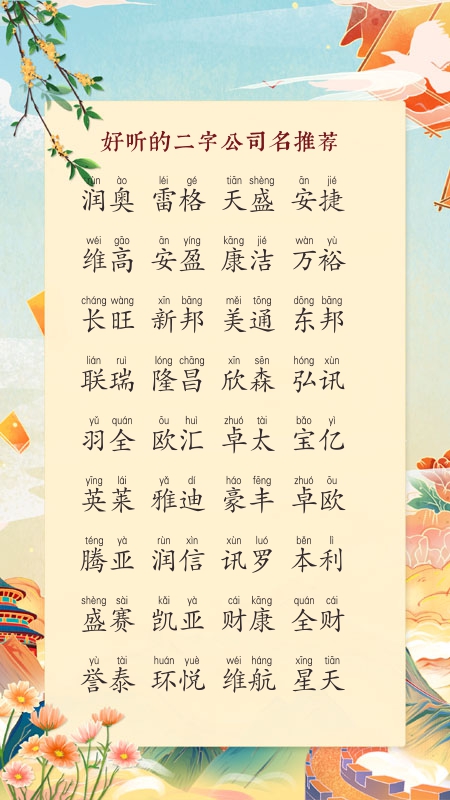 好听的二字公司名推荐
rùn ào léi gé tiān shèng ān jié
润奥 雷格 天盛 安捷
wéi gāo ān yíng kāng jié wàn yù
维高 安盈 康洁 万裕
cháng wàng xīn bāng měi tōng dōng bāng
长旺 新邦 美通 东邦
lián ruì lóng chāng xīn sēn hóng xùn
联瑞 隆昌 欣森 弘讯
yǔ quán ōu huì zhuó tài bǎo yì
羽全 欧汇 卓太 宝亿
yīng lái yǎ dí háo fēng zhuó ōu
英莱 雅迪 豪丰 卓欧
téng yà rùn xìn xùn luó běn lì
腾亚 润信 讯罗 本利
shèng sài kǎi yà cái kāng cái kāng
盛赛 凯亚 财康 全财
yù tài huán yuè wéi háng xīng tiān
誉泰 环悦 维航 星天